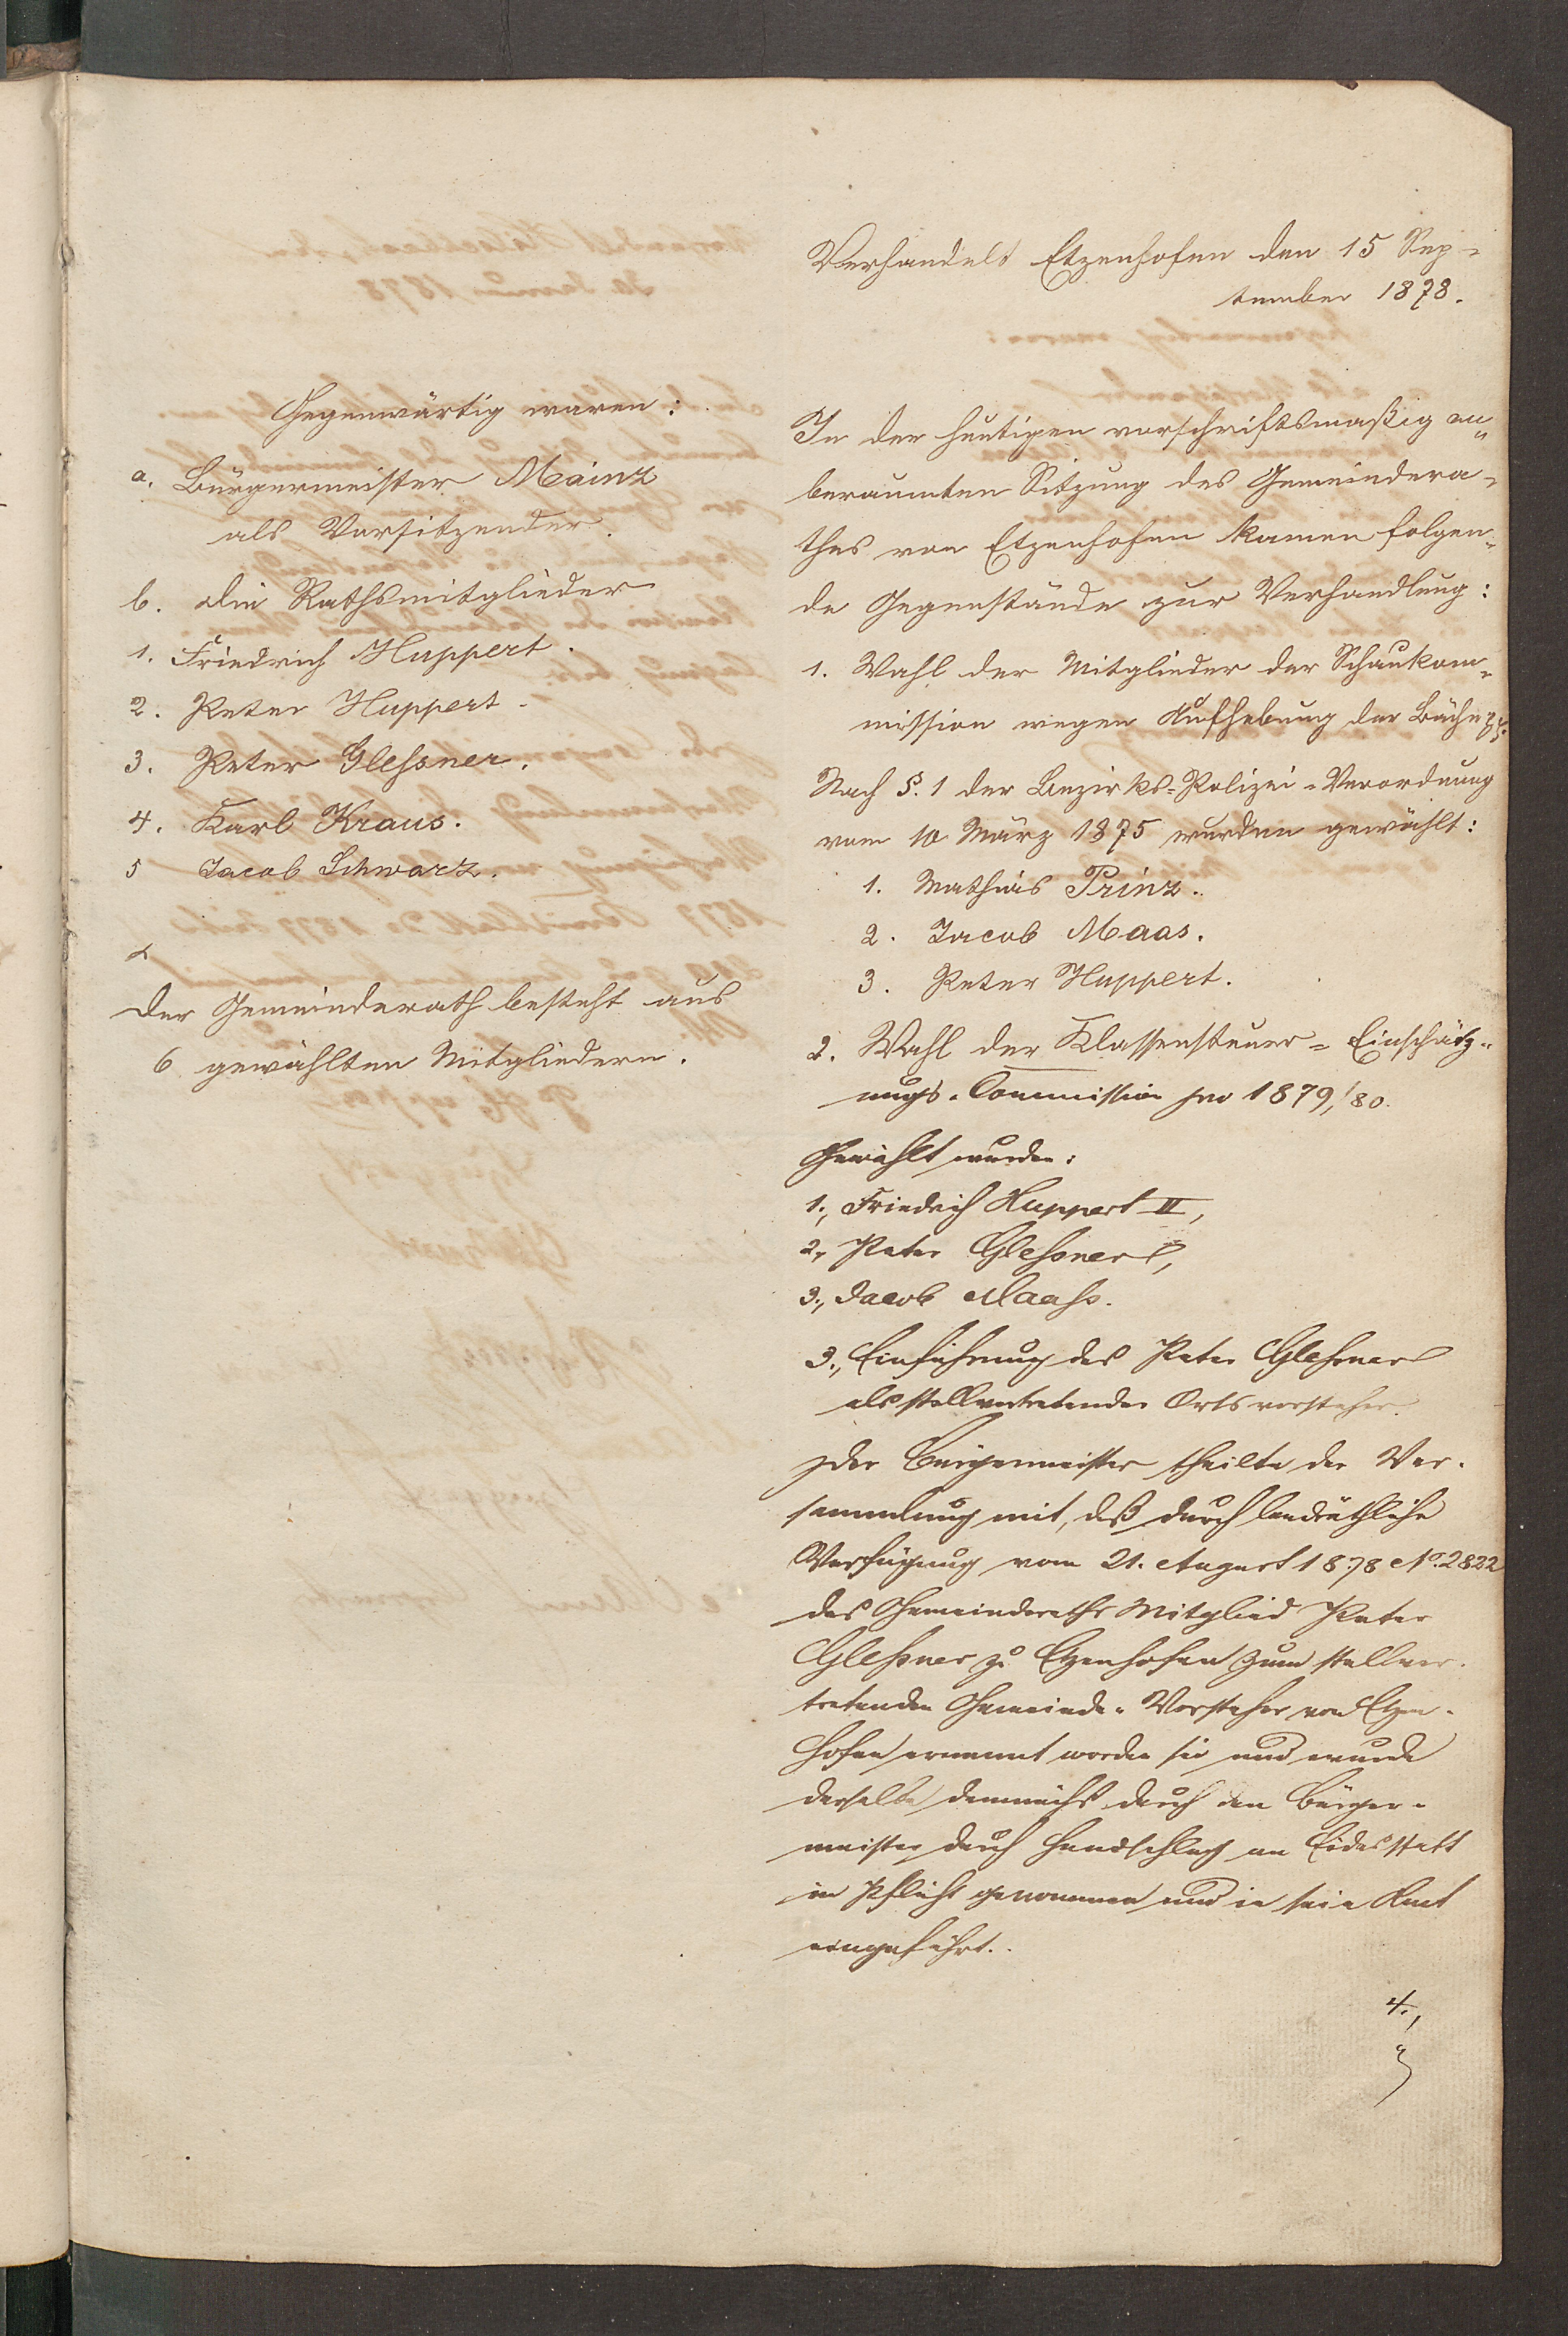 Verhandelt Etzenhofen den 15 Sep-
tember 1878.
Gegenwärtig waren:
a. Bürgermeister Mainz
als Vorsitzender.
b. die Rathsmitglieder
1. Friedrich Huppert.
2. Peter Huppert.
3. Peter Glessner.
4. Karl Kraus.
5 Jacob Schwarz.
Der Gemeinderath besteht aus
6 gewählten Mitgliedern.
In der heutigen vorschriftsmaßig an-
beraumten Sitzung des Gemeindera-
thes von Etzenhofen kamen folgen-
de Gegenstände zur Verhandlung:
1. Wahl der Mitglieder der Schaukom-
mission wegen Aufhebung der Bäche
Nach §. 1 der Bezirks-Polizei-Verordnung
vom 10 März 1875 wurden gewählt:
1. Mathias Prinz.
2. Jacob Maas.
3. Peter Huppert.
2. Wahl der Klassensteuer-Einschätz-
ungs-Commission pro 1879/80.
Gewählt wurden:
1., Friedrich Huppert II,
2., Peter Glessner,
3., Jacob Maass.
3., Einführung des Peter Glessner
als stellvertretender Ortsvorsteher.
Der Bürgermeister theilte der Ver-
sammlung mit, daß durch landräthliche
Verfügung vom 21. August 1878 No. 2822
das Gemeinderaths Mitglied Peter
Glessner zu Etzenhofen zum stellver-
tretenden Gemeinde-Vorsteher von Etzen-
hofen ernannt worden sei und wurde
derselbe demnächst durch den Bürger-
meister durch Handschlag an Eidesstatt
in Pflicht genommen und in sein Amt
eingeführt.
4.,